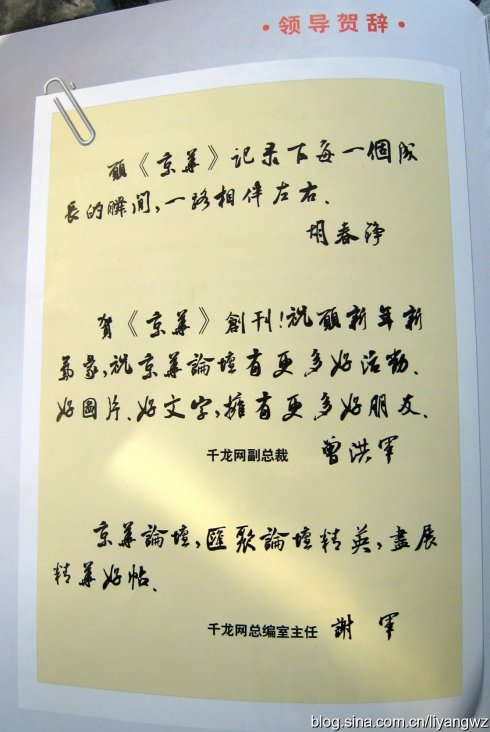 ·领导贺辞·
願《京華》记录下每一個成
長的瞬间，一路相伴左右.
胡春
賀《京華》創刊！祝願新年新
萬象，祝京華論壇有更多好活動.
好圖片.好文字，擁有更多好朋友.
千龙网副总裁 曾洪軍
京華論壇，匯聚論壇精英，盡展
精華好帖.
千龙网总编室主任 謝軍
blog.sina.com.cn/liyangwz